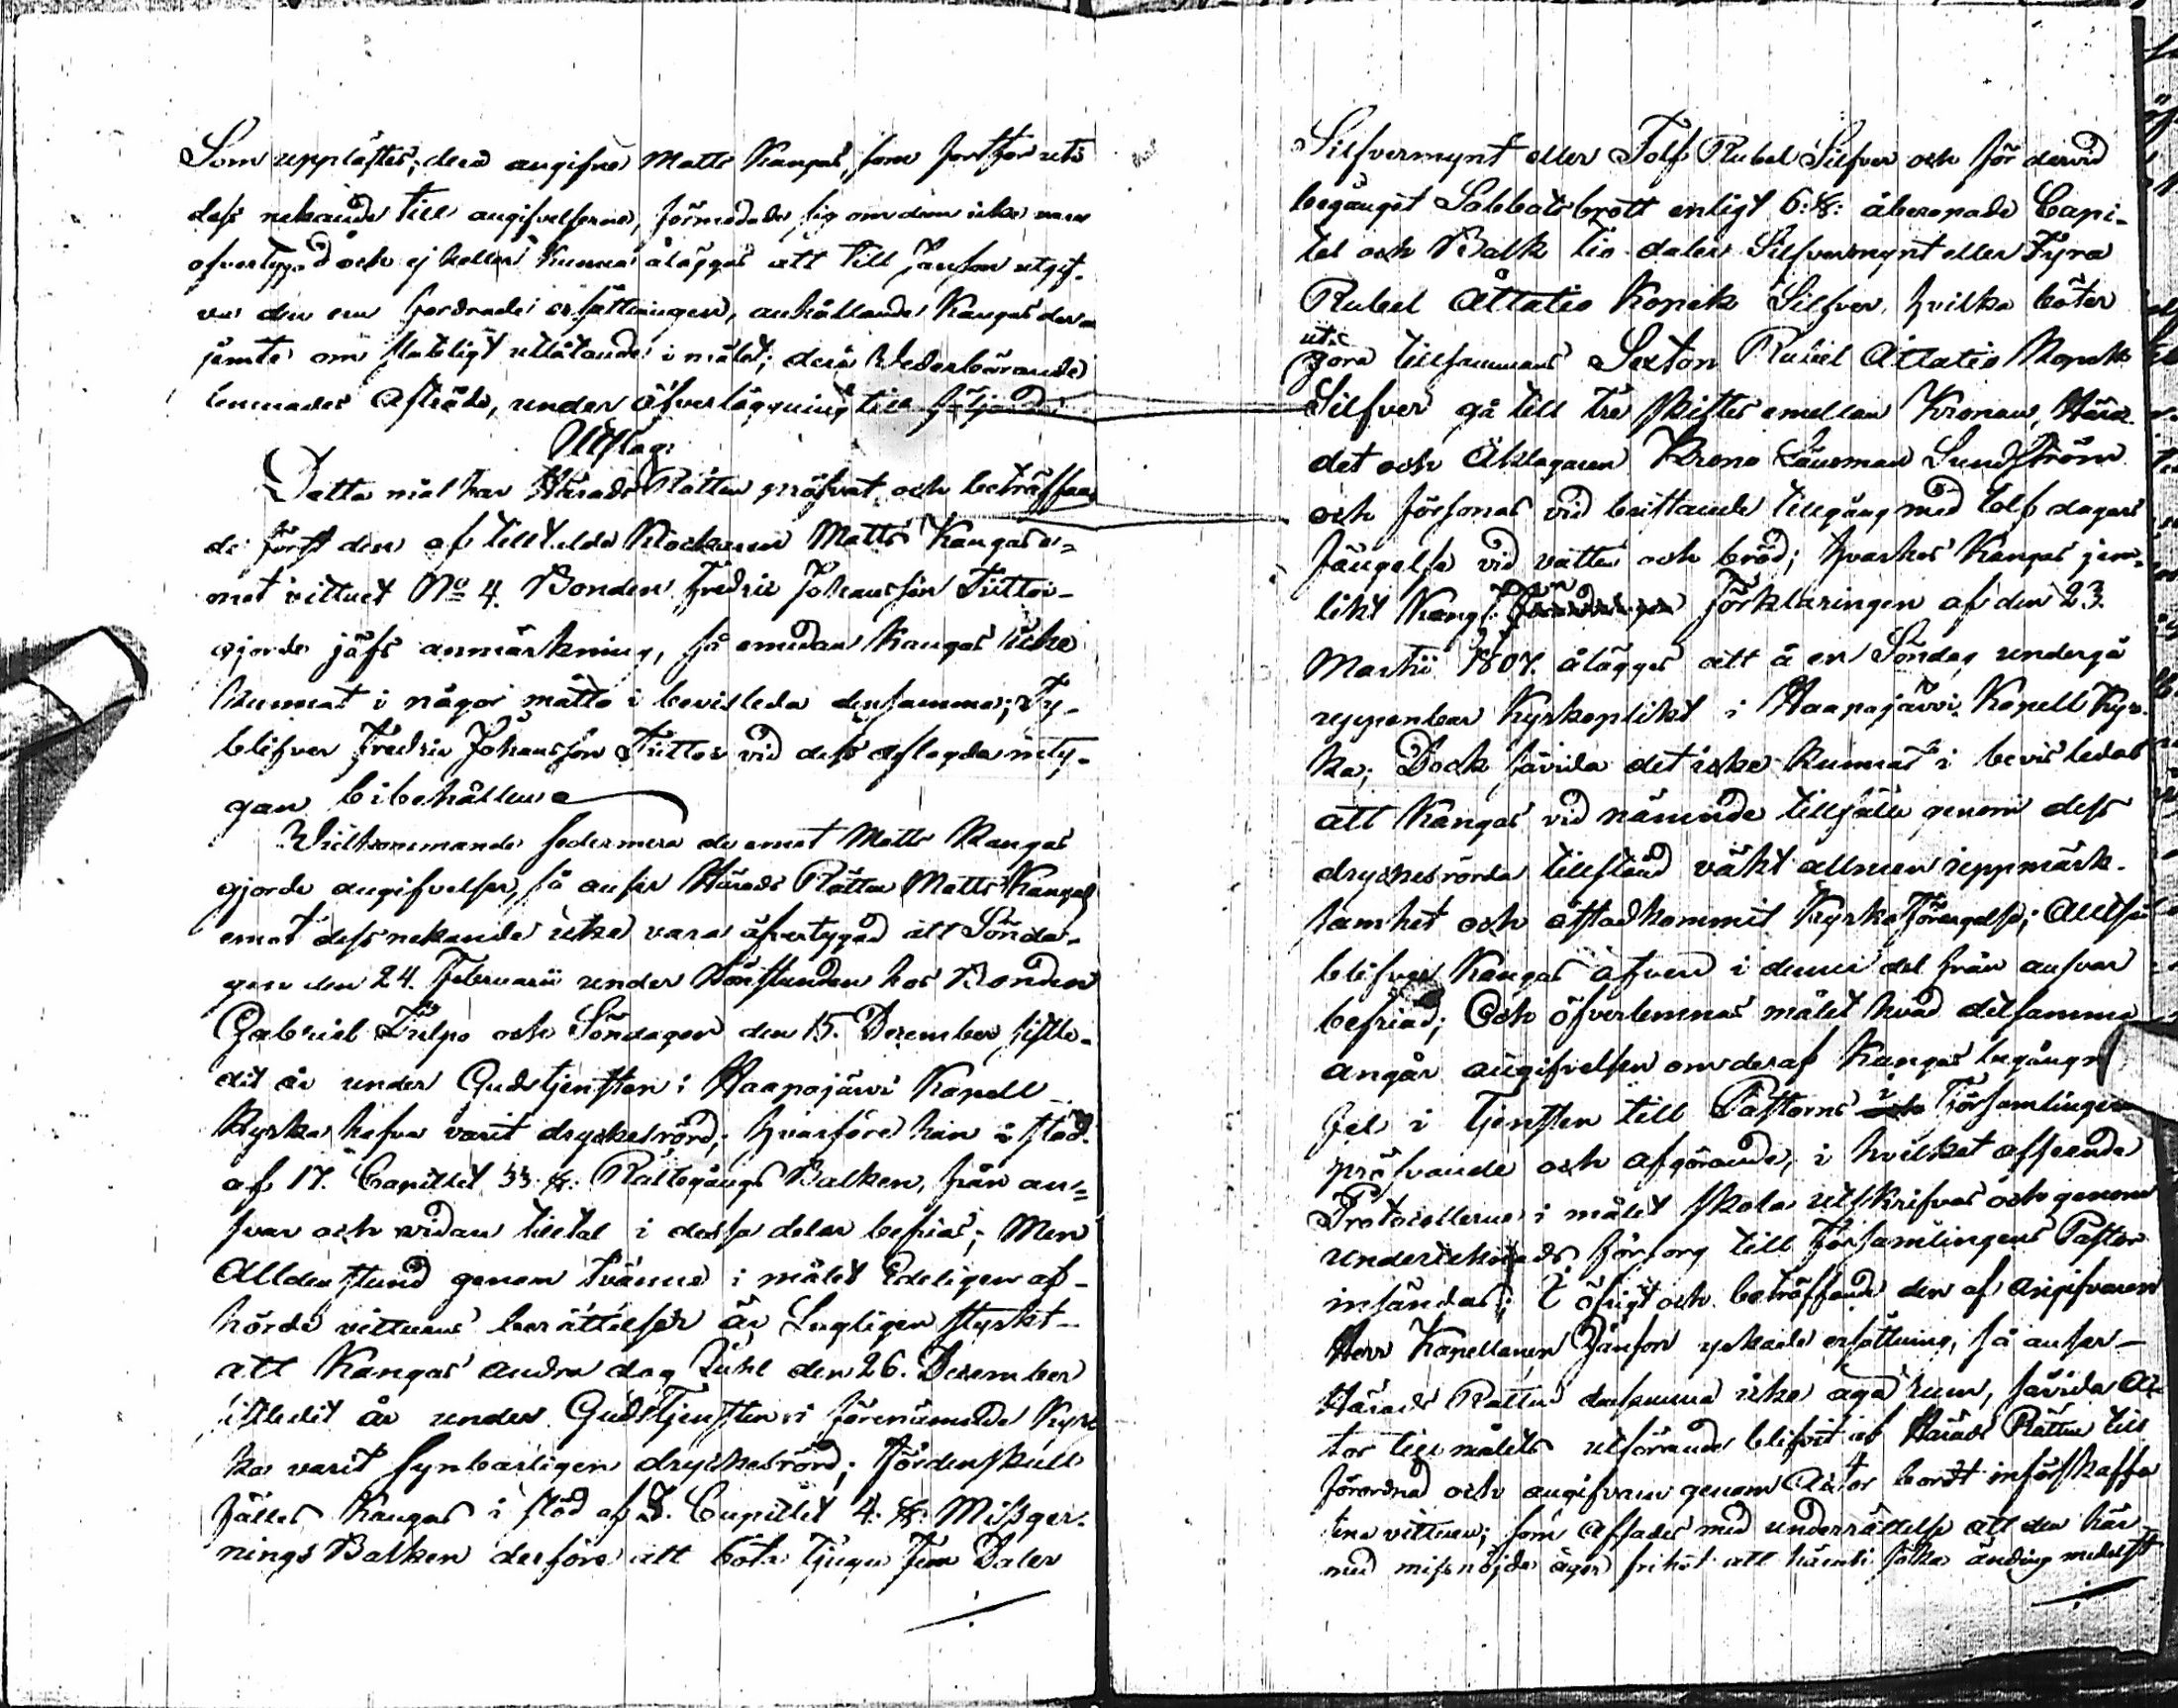 Som upplästes; dera angifne Matts Kangas, som fortfor uti
dess nekande till angifvelserne, förmodade sig om dem icke vara
öfvertygad och ej heller kunna åläggas att till Janson utgif-
va den en fordrade ersättningen, anhållande Kangas der-
jemte om slutligt utlåtande i målet; dera Wederbörande
lemnades Afträde, under öfverläggning till följande
Utslag:
Detta mål har Härads Rätten pröfvat, och beträffan-
de först den af tilltalde Klockaren Matts Kangas e-
mot vittnet No 4. Bonden Fredric Johansson Tuttoi
gjorde jäfs anmärkning, så emedan Kangas icke
kunnat i någor måtto i bevis leda densamma; Ty
blifver Fredric Johansson Tutto vid dess aflagda vitt-
gån bibehållen
Widkommande sedermera de emot Matts Kangas
gjorde angifvelser, så anser Härads Rätten Matts Kangas
emot dess nekande icke vara öfvertygad att Sönda-
gen den 24. Februarii under Bönstunden hos Bonden
Gabriel Tulpo och Söndagen den 15. December sistle-
dit år under Gudstjensten i Haapajärvi Kapell
Kyrka hafva varit dryckesrörd; hvarföre han i stöd
af 17. Capitlet 33. §. Rättegångs Balken, från an-
svar och vidare tilltal i dessa delar befrias; Men
Alldenstund genom tvänne i målet Edeligen af-
hörde vittnens berättelser är Lagligen styrkt
att Kangas andra dag Juhl den 26. December
sistledit år under Gudstjensten i förenämnde Kyr-
ka varit synbarligen dryckesrörd; Fördenskull
fälles Kangas i stöd af 3. Capitlet 4. §. Missger-
nings Balken derföre att böta Tjugu Fem Daler
Silfvermynt eller Tolf Rubel Silfver och för dervid
begånget Sabbatsbrott enligt 6: §: åberopade Capi-
tel och Balk tio daler Silfvermynt eller Fyra
Rubel Åttatio Kopek Silfver, hvilka böter
utgöra tillsammans Sexton Rubel Åttatio Kopek
Silfver gå till tre skiftes emellan Kronan, Hära-
det och Åklagaren Krono Länsman Sundström
och försonas vid bristande tillgång med tolf dagars
fängelse vid vatten och bröd; hvarhos Kangas jem-
likt Kongl. Förklaringen af den 23.
Martii 1807. ålägges att å en Söndag undergå
uppenbar Kyrkoplikt i Haapajärvi Kapell Kyr-
ka; Dock såvida det icke kunnat i bevis ledas
att Kangas vid nämnde tillfälle genom dess
dryckesrörda tillstånd väkt allmen uppmärk-
samhet och åstadkommit Kyrko Förargelse; Alltså
blifver Kangas äfven i denna del från ansvar
befriad; Och öfverlemnas målet hvad detsamma
angår angifvelsen om der af Kangas begångn
fel i Tjensten till Pastorns i Församlingen
pröfvande och afgörande, i hvilket afseende
Protocollerne i målet skola utskrifvas och genom
undertecknads försorg till Församlingens Pastor
insändas; I öfrigt och beträffande den af Angifvaren
Herr Kapellanen Janson yrkade ersättning, så anser
Härads Rätten densamma icke äga rum, såvida Ac-
tor till målets utförande blifvit af Härads Rätten till
förordnad och angifvaren genom Actor bordt införskaffa
sina vittnen; som Afsades med underrättelse att den här
med missnöjde äger frihet att häruti söka ändring medelst